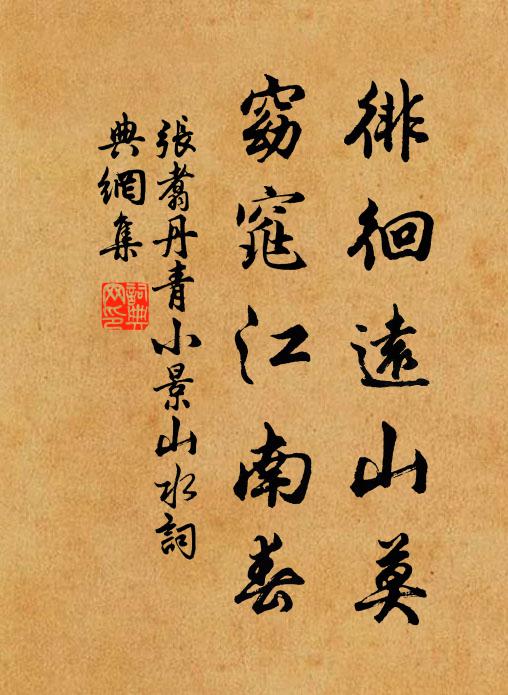 徘徊遠山莫
窈窕江南春
張翥丹青小景山水詞
典網集
詞典
网印